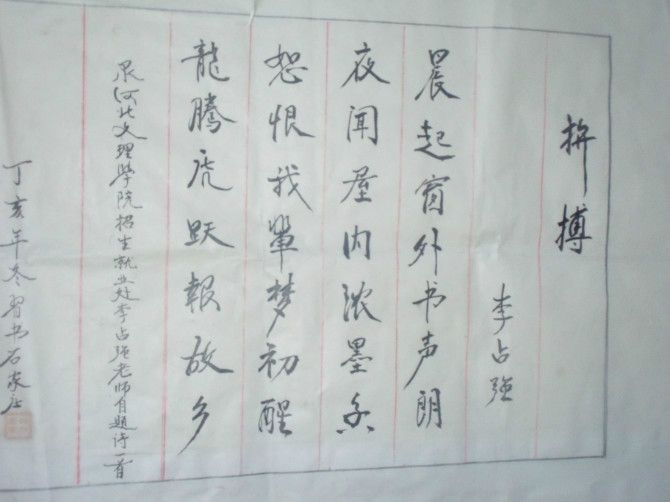 拚搏
李占强
晨起窗外书声朗
夜闻屋内浓墨香
怨恨我辈梦初醒
龍腾虎跃報故乡
河北文理學院招生就业处李占强老师自题诗一首
丁亥年冬習书石家庄